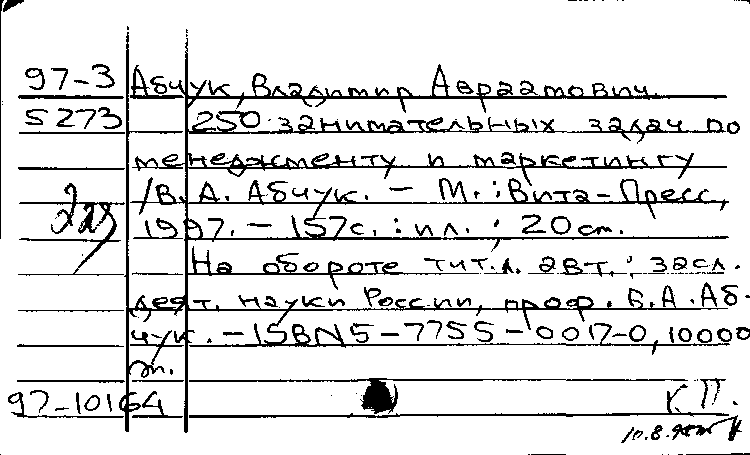 97-3 Абчук, Владимир Авраамович.
5273 250 занимательных задач по
менеджменту и маркетингу
/В. А. Абчук. – М. : Вита-Пресс,
1997. – 157с. : ил. ; 20 см.
На обороте тит. л. авт. : засл.
деят. науки России, проф. В. А. Аб-
чук. – ISBN 5-7755-0017-0, 10000
эк.
97-10164 КП.
10.8.98